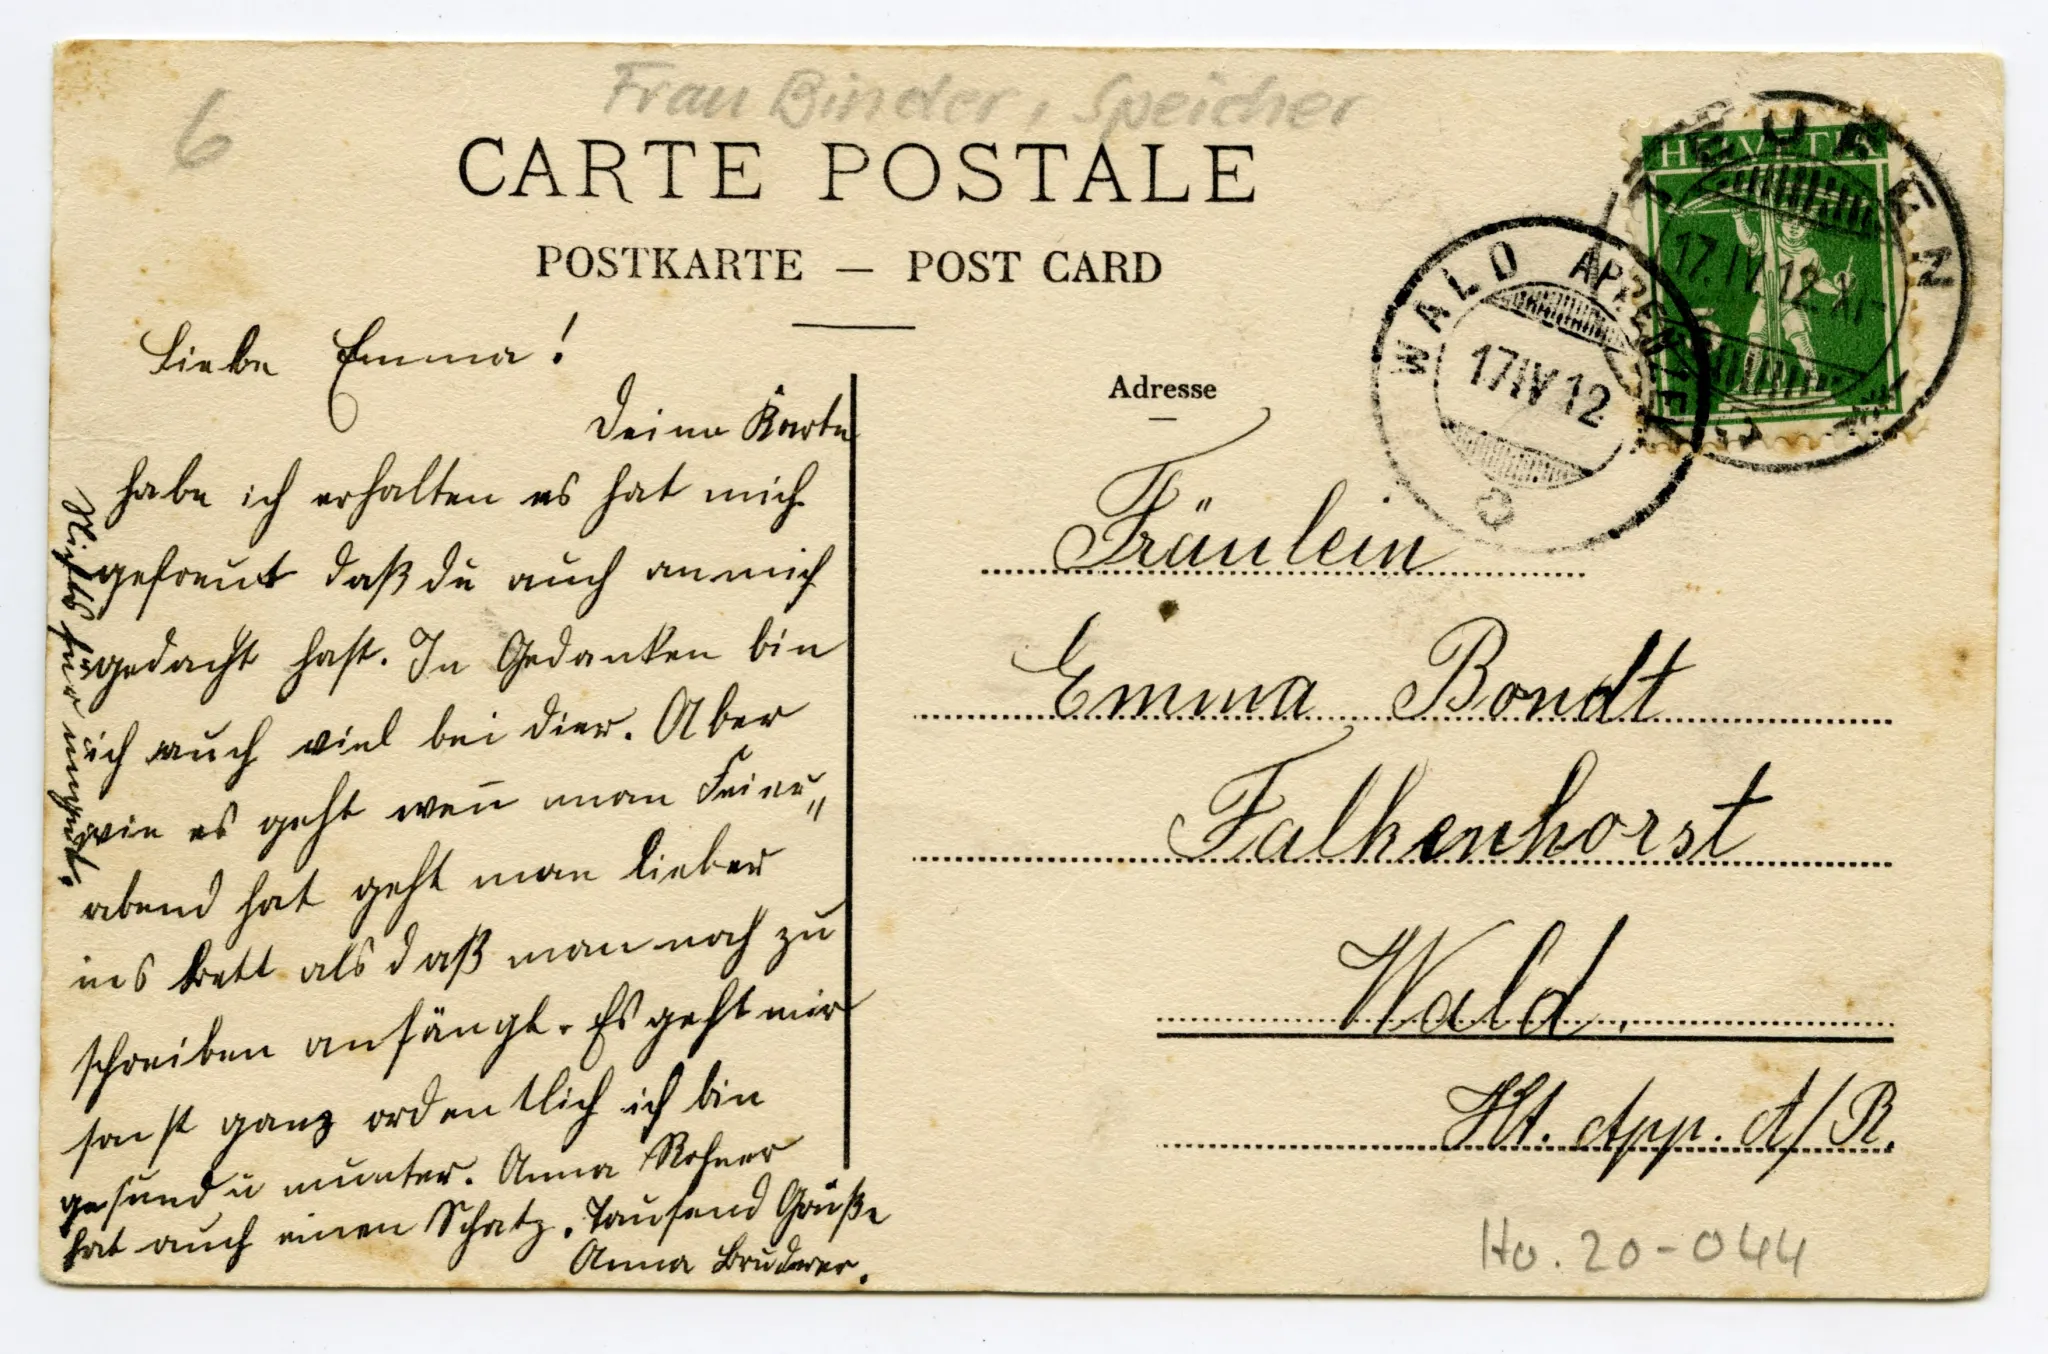 6
Frau Binder, Speicher
CARTE POSTALE
POSTKARTE — POST CARD
HELVETIA
17.IV.12.XI-
WALD APPENZELL
17 IV 12
Liebe Emma!
Deine Karte
habe ich erhalten es hat mich
gefreut daß du auch an mich
gedacht hast. In Gedanken bin
ich auch viel bei dier. Aber
wie es geht weñ man Feier„
abend hat geht man lieber
ins Bett als daß man noch zu
schreiben anfängt. Es geht mir
sonst ganz ordentlich ich bin
gesund u munter. Anna Rohner
hat auch einen Schatz. Tausend Grüße
Anna Bruderer.
Nichts für ungut.
Adresse
Fräulein
Emma Bondt
Falkenhorst
Wald
Kt. App. A/R.
Ho. 20-044